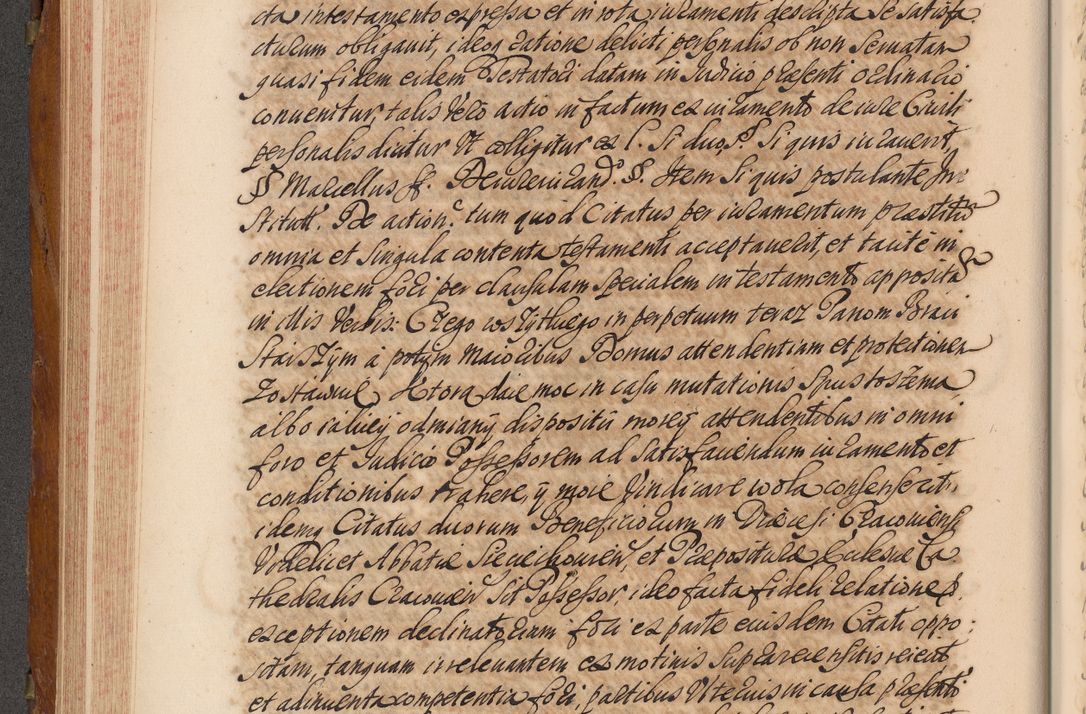 cta in testamento expressa et in rota iuramenti descripta se satisfa
cturum obligauit, ideoq ratione delicti personalis ob non seruatam
quasi fidem eidem Testatori datam in Judicio præsenti ordinario
conuenitur, talis vero actio in factum ex iuramento de iure Ciuili
personalis dicitur Vt colligitur ex l. Si duo, §. Si quis iurauerit,
§§ Marcellus ff. De iureiurand.º §. Item Si quis postulante In
stitutt. De action. tum quod Citatus per iuramentum præstitum
omnia et singula contenta testamenti acceptauerit, et tacité in
electionem fori per clausulam specialem in testamento apposita
in illis verbis: Czego wszytkiego in perpetuum teraz Panom Braci
Starszym a potym Maioribus Domus attendentiam et protectionem
Zostawuię Ktora daie moc in casu mutationis Spustoszenia
albo iakiey odmiany dispositii moiey attendentibus in omni
foro et Judicio Possessorem ad satisfaciendum iuramento et
conditionibus trahere, y moie vindicare wola consenserit,
idemq Citatus duorum Beneficiorum in Diœcesi Cracouiensi
Videlicet Abbatiæ Sieciehouien, et Præpositure Ecclesiæ Ca
thedralis Cracouien Sit Possessor, ideo facta fideli relatione
exceptionem declinatoriam fori ex parte eiusdem Citati oppo:
sitam, tanquam irreleuantem ex motiuis supra recensitis reiecit
et adinuenta competentia fori, partibus Vtriusq in causa præsenti